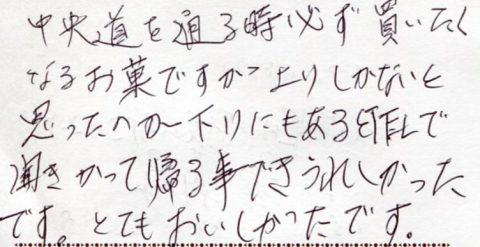 中央道を通る時必ず買いたく
なるお菓ですが上りしかないと
思ったのが下りにもある印しで
聞きかって帰る事できうれしかった
です。とてもおいしかったです。